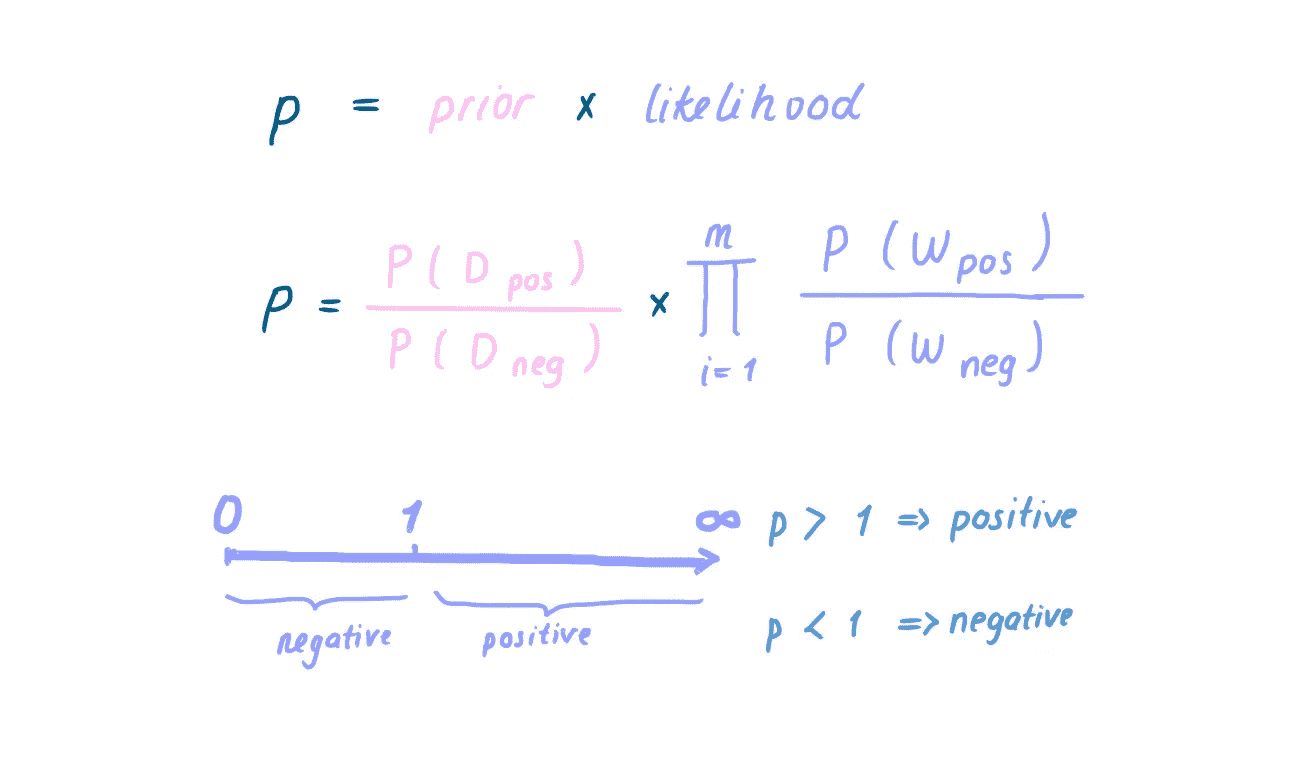 p = prior x likelihood
p = P(D pos) / P(D neg) x m ∏ i=1 P(W pos) / P(W neg)
0 1 ∞
negative positive
p > 1 => positive
p < 1 => negative